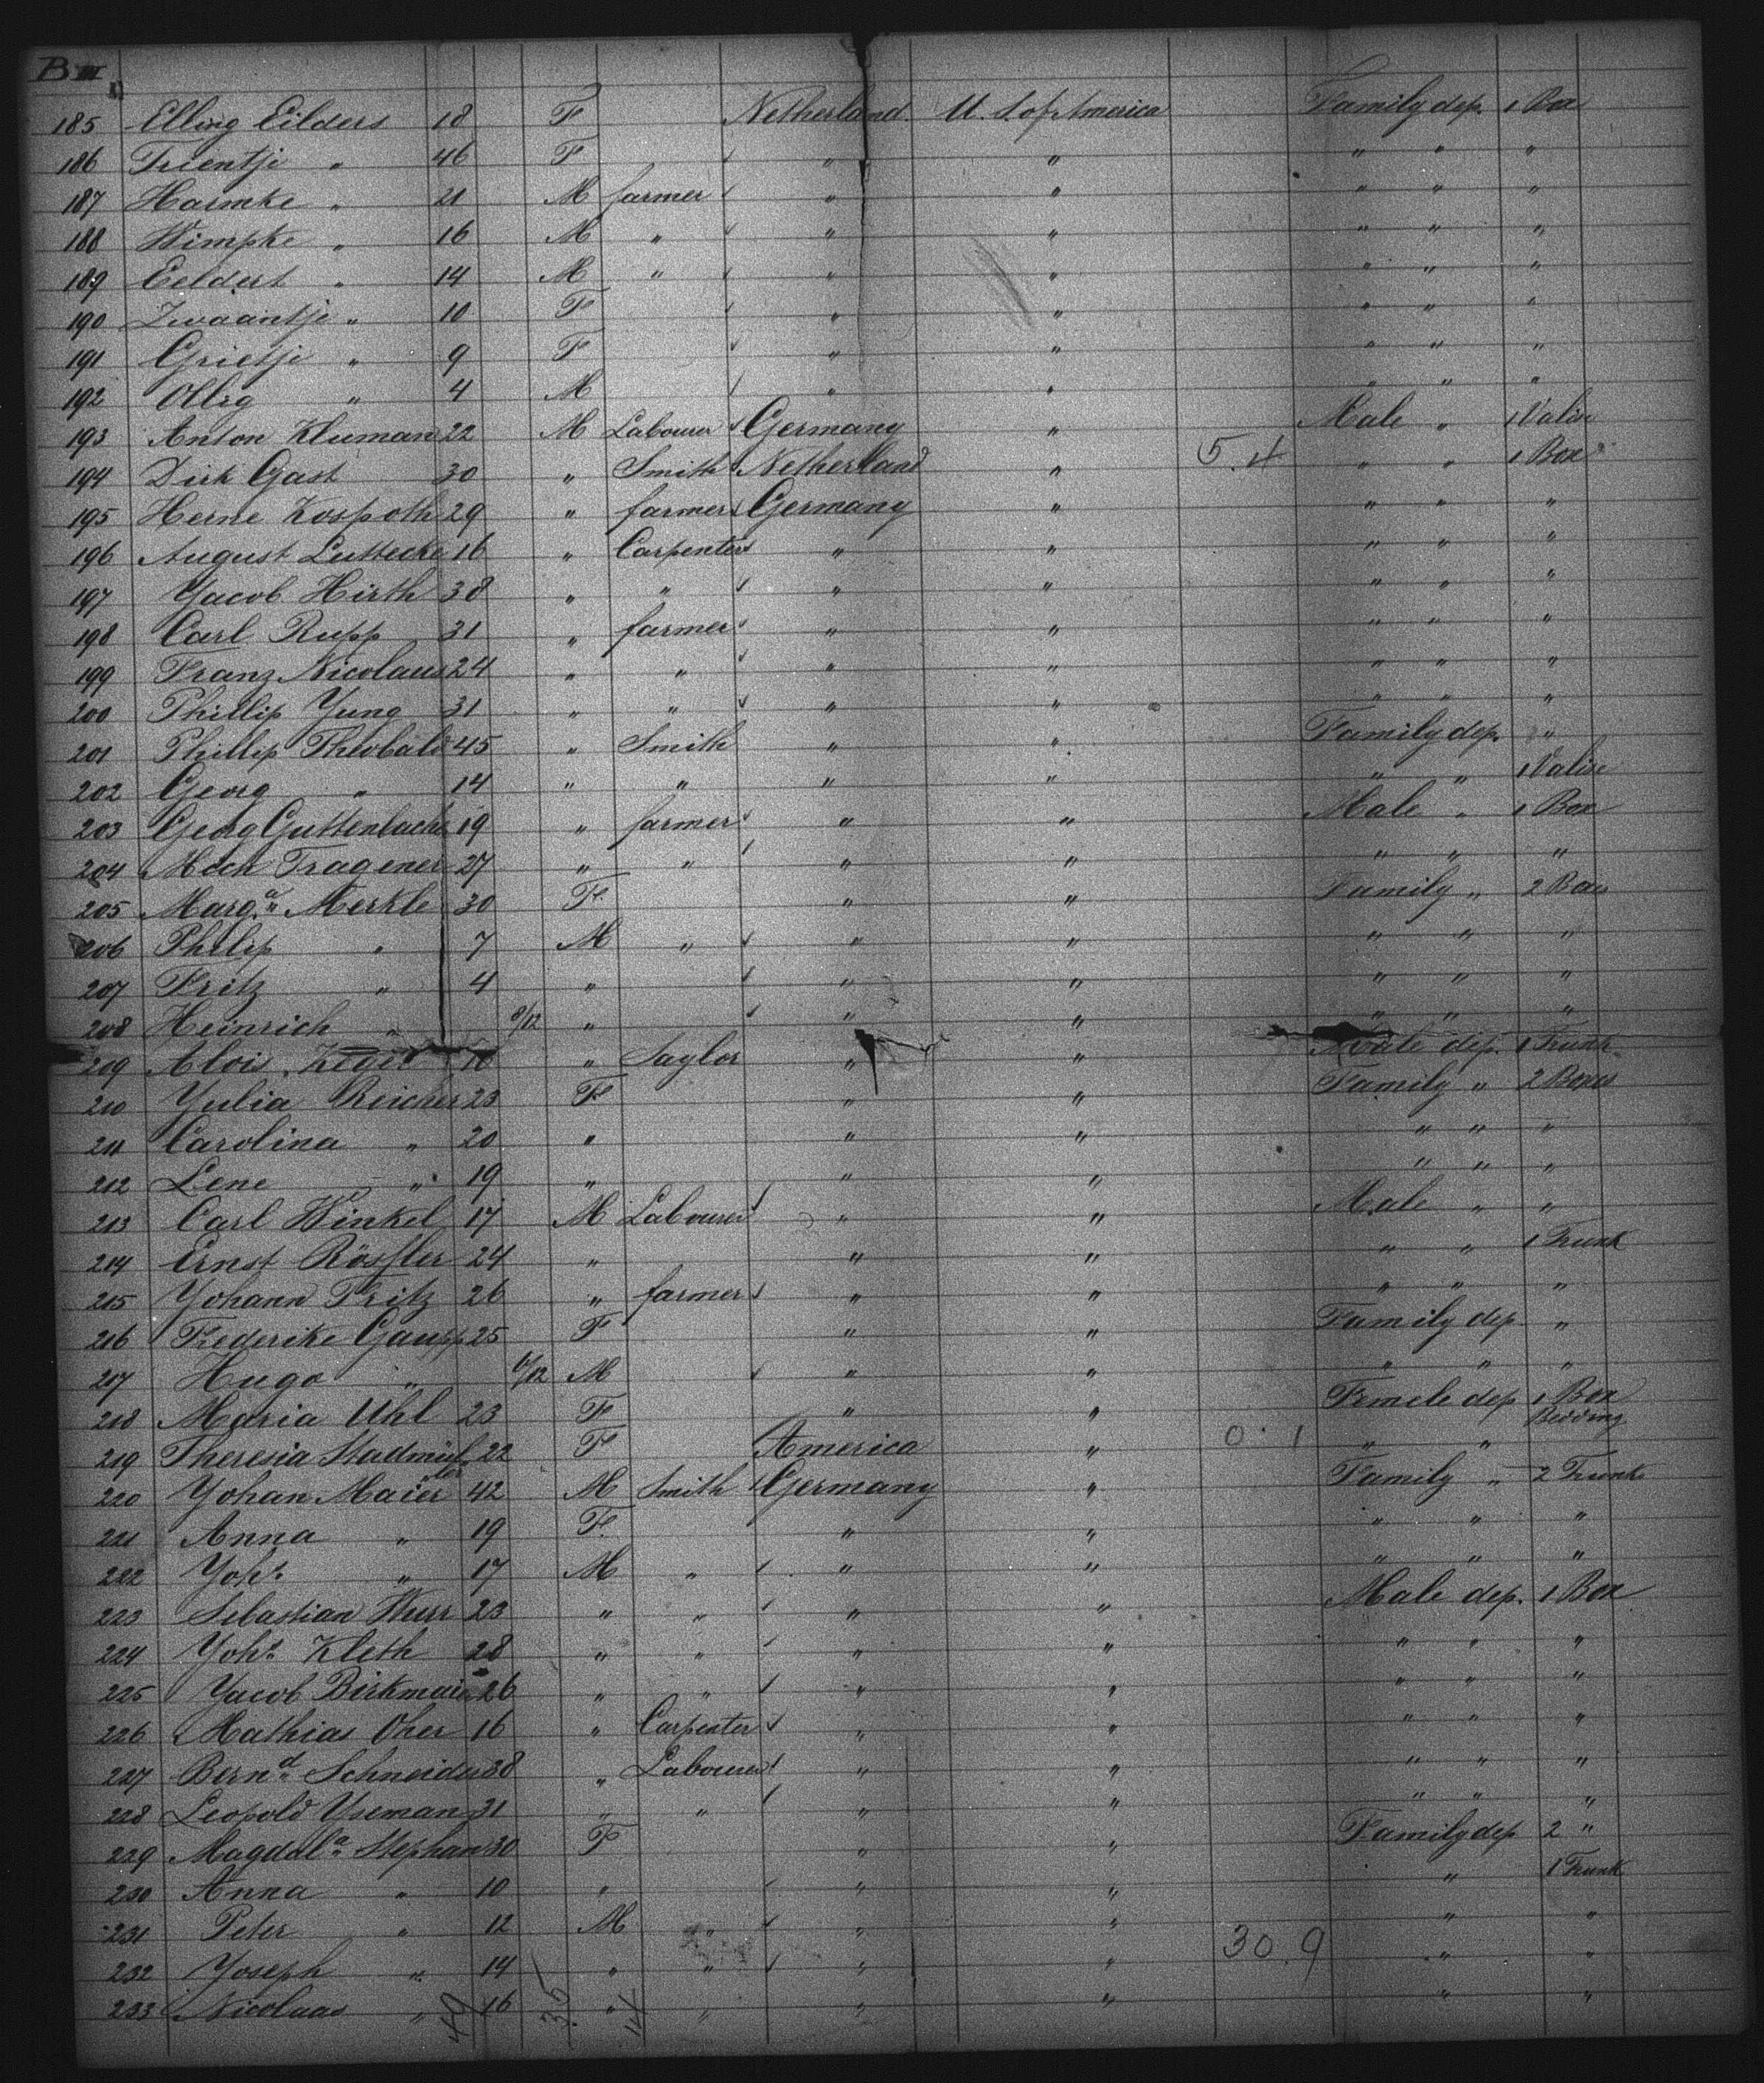 B III
185 Elling Eilders 18 F Netherland U. S. of America Family dep. 1 Box
186 Trientje " 46 F " " " " "
187 Harmke " 21 M farmer " " " " "
188 Wimpke " 16 M " " " " " "
189 Eeldert " 14 M " " " " " "
190 Zwaantje " 10 F " " " " "
191 Grietje " 9 F " " " " "
192 " 4 M " " " " "
193 Anton Kluman 22 M Labourer Germany " Male " 1 Valise
194 Dirk Gast 30 " Smith Netherland " 5. 4 " " 1 Box
195 Herne Kospoth 29 " farmer Germany " " " "
196 August Luttecke 16 " Carpenter " " " " "
197 Yacob Hirth 38 " " " " " " "
198 Carl Rupp 31 " farmer " " " " "
199 Franz Nicolaus 24 " " " " " " "
200 Phillip Yung 31 " " " " " " "
201 Phillip Theobald 45 " Smith " " Family dep. "
202 Georg " 14 " " " " " " 1 Valise
203 Georg Guttenlache 19 " farmer " " Male " 1 Box
204 Tragener 27 " " " " " " "
205 Marg.a Merkle 30 F. " " Family " 2 Box
206 Philip " 7 M " " " " " "
207 Fritz " 4 " " " " " "
208 Heinrich " 8/12 " " " " " "
209 Alois 16 " Taylor " " Male dep. 1 Trunk
210 Yulia Reicher 23 F " " Family " 2 Boxes
211 Carolina " 20 " " " " " "
212 Lene " 19 " " " " " "
213 Carl Winkel 17 M Labourer " " Male " "
214 Ernst Rössler 24 " " " " " 1 Trunk
215 Yohann Fritz 26 " farmer " " " " "
216 Frederike Gaupp 25 F " " Family dep "
217 Hugo " 6/12 M " " " " "
218 Maria Uhl 23 F " " Femele dep 1 Box
Bedding
219 Theresia Stadmül 22 F America " 0. 1 " "
ler
220 Yohan Maier 42 M Smith Germany " Family " 2 Trunk
221 Anna " 19 F. " " " " "
222 Yoh.s " 17 M " " " " " "
223 Sebastian Wurr 23 " " " " Male dep. 1 Box
224 Yoh.s Kleth 28 " " " " " " "
225 Yacob Birkmaier 26 " " " " " " "
226 Mathias Oher 16 " Carpenter " " " " "
227 Bern.d Schneider 38 " Labourer " " " " "
228 Leopold Yseman 31 " " " " " " "
229 Magdal.a Stephan 30 F " " Family dep 2 "
230 Anna " 10 " " " " 1 Trunk
231 Peter " 12 M " " " " "
232 Yoseph " 14 " " " " 30. 9 " "
233 Nicolaas " 16 " " " " " "
49 35 14